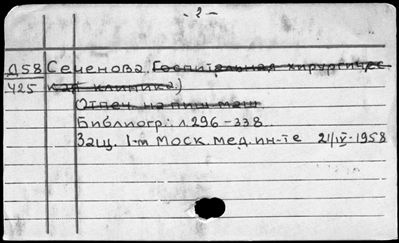 - 2 -
Д58 Сеченова. Госпитальная хирургичес-
425 кая клиника.)
Отпеч. на пиш. маш.
Библиогр.: л. 296-338
Защ. 1-м Моск. мед. ин-те 21/IV-1958